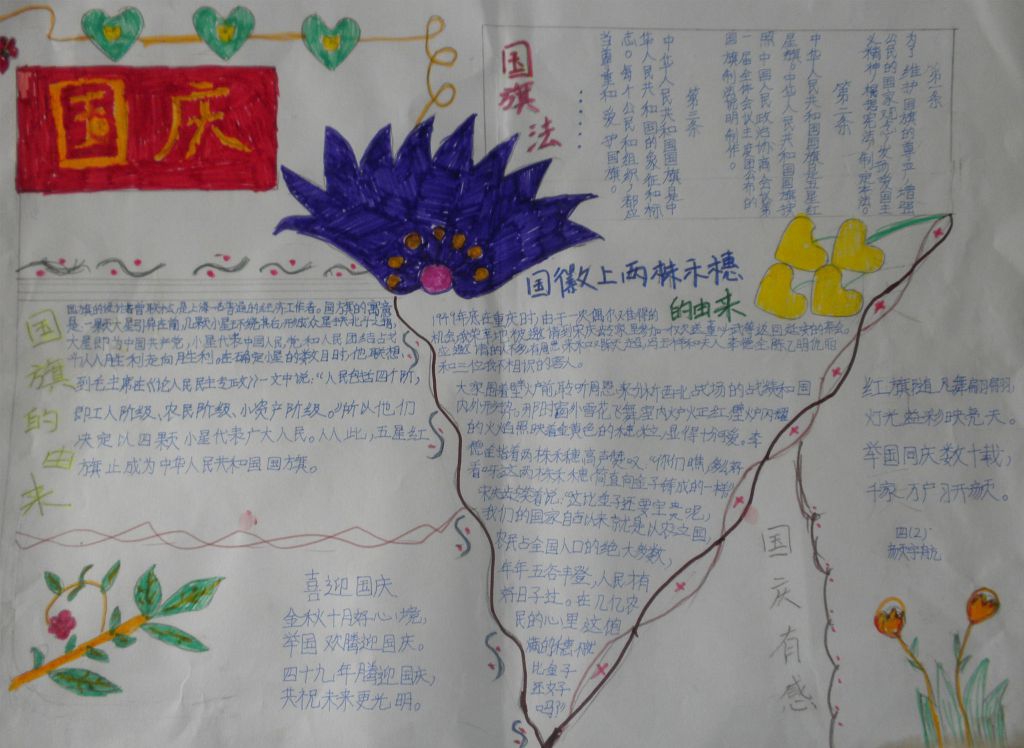 国庆
国旗法
第一条
为了维护国旗的尊严,增强
公民的国家观念,发扬爱国主
义精神,根据宪法,制定本法。
第二条
中华人民共和国国旗是五星红
星旗。中华人民共和国国旗按
照中国人民政治协商会议第
一届全体会议主席团公布的
国旗制法说明制作。
第三条
中华人民共和国国旗是中
华人民共和国的象征和标
志。每个公民和组织,都应
当尊重和爱护国旗。
国旗的由来
国旗的设计者曾联松,是上海一名普通的经济工作者。国旗的寓意
是一颗大星引导在前,几颗小星环绕其后,
大星即为中国共产党,小星代表中国人民,党和人民团结
从胜利走向胜利。在确定小星的数目时,他联想
到毛主席在《论人民民主专政》一文中说:“人民包括四个阶,
即工人阶级、农民阶级、小资产阶级。”所以他,们
决定以四颗小星代表广大人民。从此,五星红
旗止成为中华人民共和国国旗。
国徽上两株禾穗
的由来
1949年底在重庆时,由于一次偶然难得的
机会,我荣幸地被邀请到宋庆龄家里参加一次欢送董
和三位我不相识的客人。
大家围着壁火炉前,聆听周恩来分析西北战场的战绩和国
内外形势。那时窗外雪花飞舞,室内炉火正红,壁炉闪耀
的火焰照映着金黄色的穗,显得十分可爱。李
看呀,这两株禾穗,简直向金子铸成的一样。”
宋大姐笑着说:“这比金子还要宝贵呢,
我们的国家自古以来就是以农立国,
农民占全国人口的绝大多数,
年年五谷丰登,人民才有
好日子过。在几亿农
民的心里,这个
满的穗粒
比金子
还好
吗?”
喜迎国庆
金秋十月好心境,
举国欢腾迎国庆。
四十九年腾迎国庆,
共祝未来更光明。
国庆有感
红旗随风舞翩翩,
灯光溢彩映亮天。
举国同庆数十载,
千家万户习开颜。
四(2)